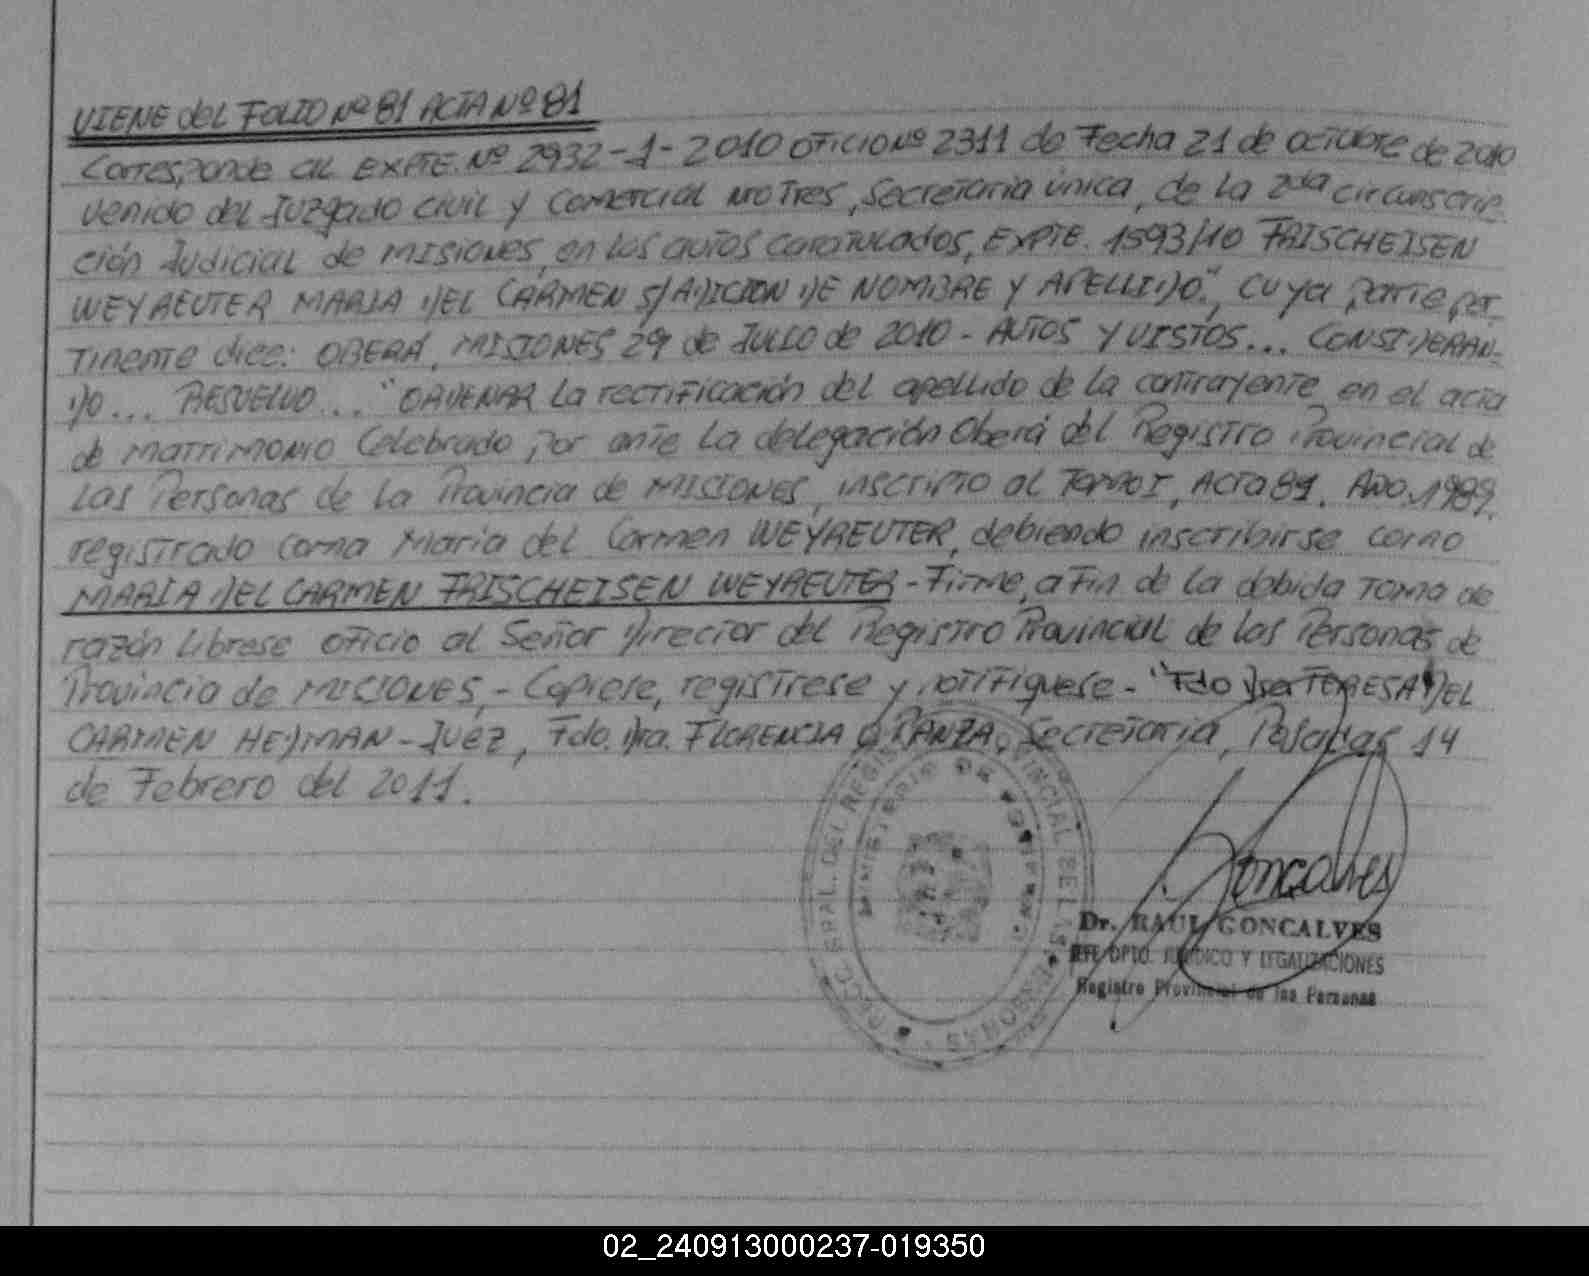 VIENE del FOLIO Nº 81 ACTA Nº 81
Corresponde al EXPTE. Nº 2932-1-2010 oficio Nº 2311 de Fecha 21 de octubre de 2010
venido del Juzgado Civil y Comercial Nro Tres, Secretaria única, de la 2da circunscrip
ción Judicial de MISIONES, en los autos caratulados, EXPTE. 1593/10 FRISCHEISEN
WEYREUTER MARIA DEL CARMEN S/ADICION DE NOMBRE Y APELLIDO", cuya parte per-
tinente dice: OBERÁ, MISIONES 29 de JULIO de 2010 - AUTOS Y VISTOS... CONSIDERAN-
DO... RESUELVO... "ORDENAR la rectificación del apellido de la contrayente en el acta
de matrimonio Celebrado por ante la delegación Oberá del Registro Provincial de
las Personas de la Provincia de MISIONES, inscripto al Tomo I, Acta 81. Año 1989.
registrado como María del Carmen WEYREUTER, debiendo inscribirse como
MARIA DEL CARMEN FRISCHEISEN WEYREUTER - Firme, a fin de la debida toma de
razón librese oficio al Señor Director del Registro Provincial de las Personas de
Provincia de MISIONES, - Copiese, registrese y notifiquese - "Fdo Dra TERESA DEL
CARMEN HEDMAN - Juez, Fdo. Dra. FLORENCIA PANZA, Secretaria, Posadas 14
de Febrero del 2011.
GRAL. DEL REGISTRO PROVINCIAL DE LAS PERSONAS
MINISTERIO DE
Goncalves
Dr. RAUL GONCALVES
JEFE DPTO. JURIDICO Y LEGALIZACIONES
Registro Provincial de las Personas
02_240913000237-019350